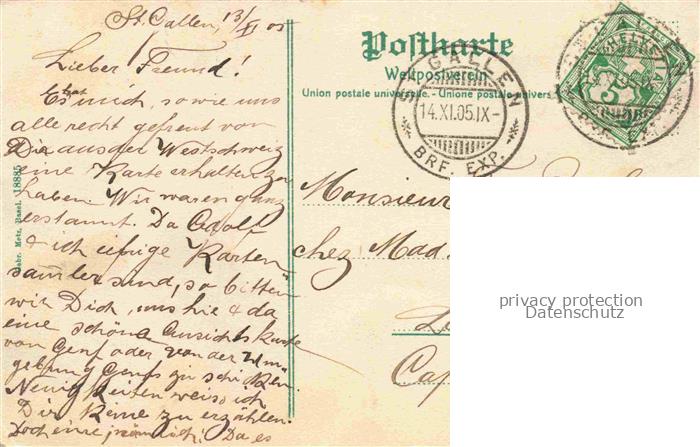 St. Gallen, 13/XI 05
Lieber Freund!
Es hat mich, sowie uns
alle recht gefreut von
Dir aus der Westschweiz
eine Karte erhalten zu
haben. Wir waren ganz
erstaunt. Da Adolf
& ich eifrige Karten
sammler sind, so bitten
wir Dich, uns hie & da
eine schöne Ansichtskarte
von Genf oder von der Um-
gebung Genfs zu schicken.
Neuigkeiten weiss ich
Dir keine zu erzählen.
Doch eine, nämlich: Da es
Gebr. Metz, Basel. 18885
Postkarte
Weltpostverein
Union postale universelle. - Unione postale univers
ST. GALLEN
14.XI.05.IX-
BRF. EXP.
HELVETIA
5
Monsieur
chez Mad.
Cap
privacy protection
Datenschutz